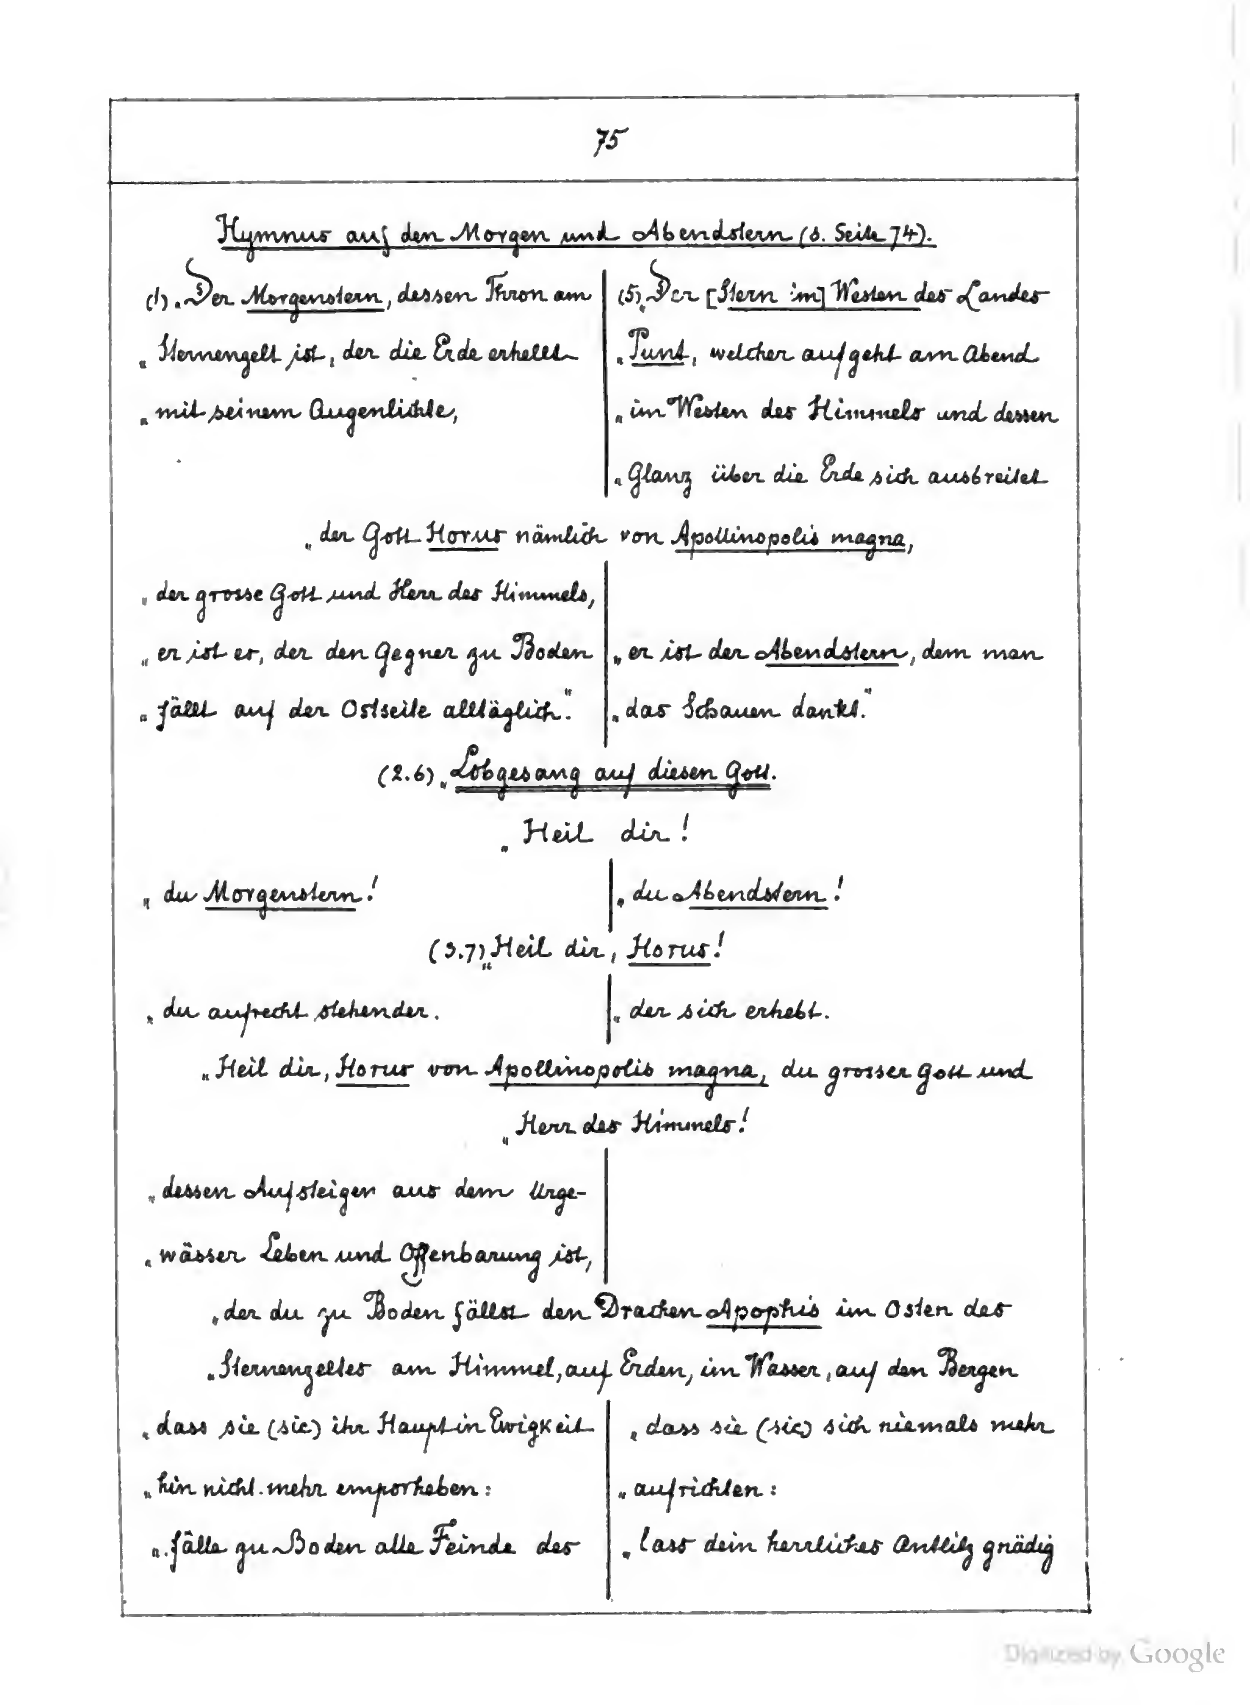 75
Hymnus auf den Morgen und Abendstern (s. Seite 74).
(1) „Der Morgenstern, dessen Thron am
„Sternenzelt ist, der die Erde erhellt
„mit seinem Augenlichte,
(5) „Der [Stern im] Westen des Landes
„Punt, welcher aufgeht am Abend
„im Westen des Himmels und dessen
„Glanz über die Erde sich ausbreitet
„der Gott Horus nämlich von Apollinopolis magna,
„der grosse Gott und Herr des Himmels,
„er ist es, der den Gegner zu Boden
„fällt auf der Ostseite alltäglich."
„er ist der Abendstern, dem man
„das Schauen dankt."
(2.6) „Lobgesang auf diesen Gott.
„Heil dir!
„du Morgenstern!
„du Abendstern!
(3.7) „Heil dir, Horus!
„du aufrecht stehender.
„der sich erhebt.
„Heil dir, Horus von Apollinopolis magna, du grosser Gott und
„Herr des Himmels!
„dessen Aufsteigen aus dem Urge-
„wässer Leben und Offenbarung ist,
„der du zu Boden fällst den Drachen Apophis im Osten des
„Sternenzeltes am Himmel, auf Erden, im Wasser, auf den Bergen
„dass sie (sic) ihr Haupt in Ewigkeit
„hin nicht mehr emporheben:
„fälle zu Boden alle Feinde des
„dass sie (sic) sich niemals mehr
„aufrichten:
„lass dein herrliches Antlitz gnädig
Digitized by Google